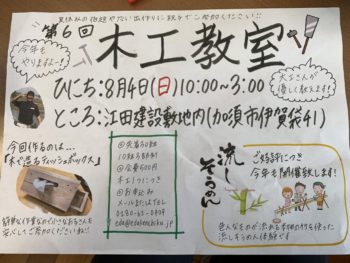 夏休みの宿題や思い出作りに親子でご参加ください!!
第6回 木工教室
今年もやりますよー!
大工さんが優しく教えます!
ひにち:8月4日(日)10:00~3:00
ところ:江田建設敷地内(加須市伊賀袋41)
今回作るのは…
「木で造るティッシュボックス」
簡単な作業なので小さなお子さんも
安心してご参加くださいね!!
@先着30組
@会費500円
木工1つにつき
@お申込み
メールまたはTEL
0280-62-0809
流しそうめん
ご好評につき
今年も開催致します!
色んなものが流れる本物の竹を使った
流しそうめん体験です